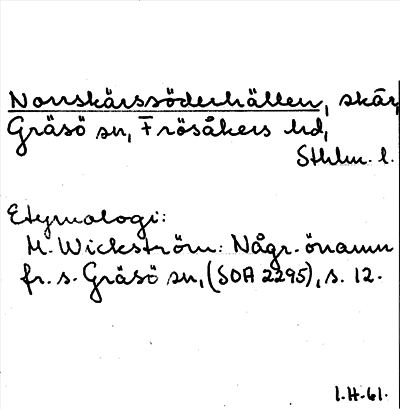 Norrskärssöderhällen, skär,
Gräsö sn, Frösåkers hd,
Sthlm. l.
Etymologi:
M. Wickström: Någr. önamn
fr. s. Gräsö sn, (SOA 2295), s. 12.
1.H.61.